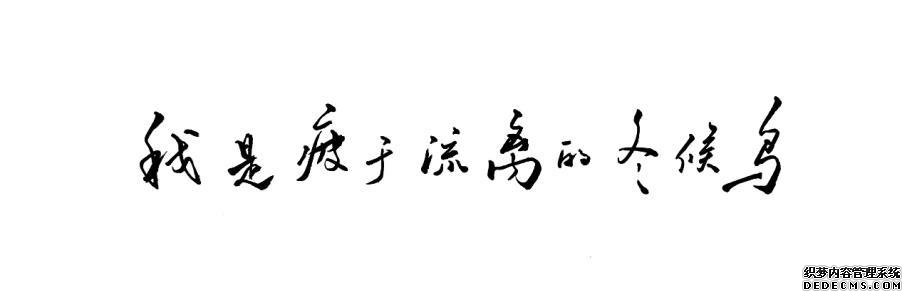 我是疲于流离的冬候鸟
织梦内容管理系统
DEDECMS.COM